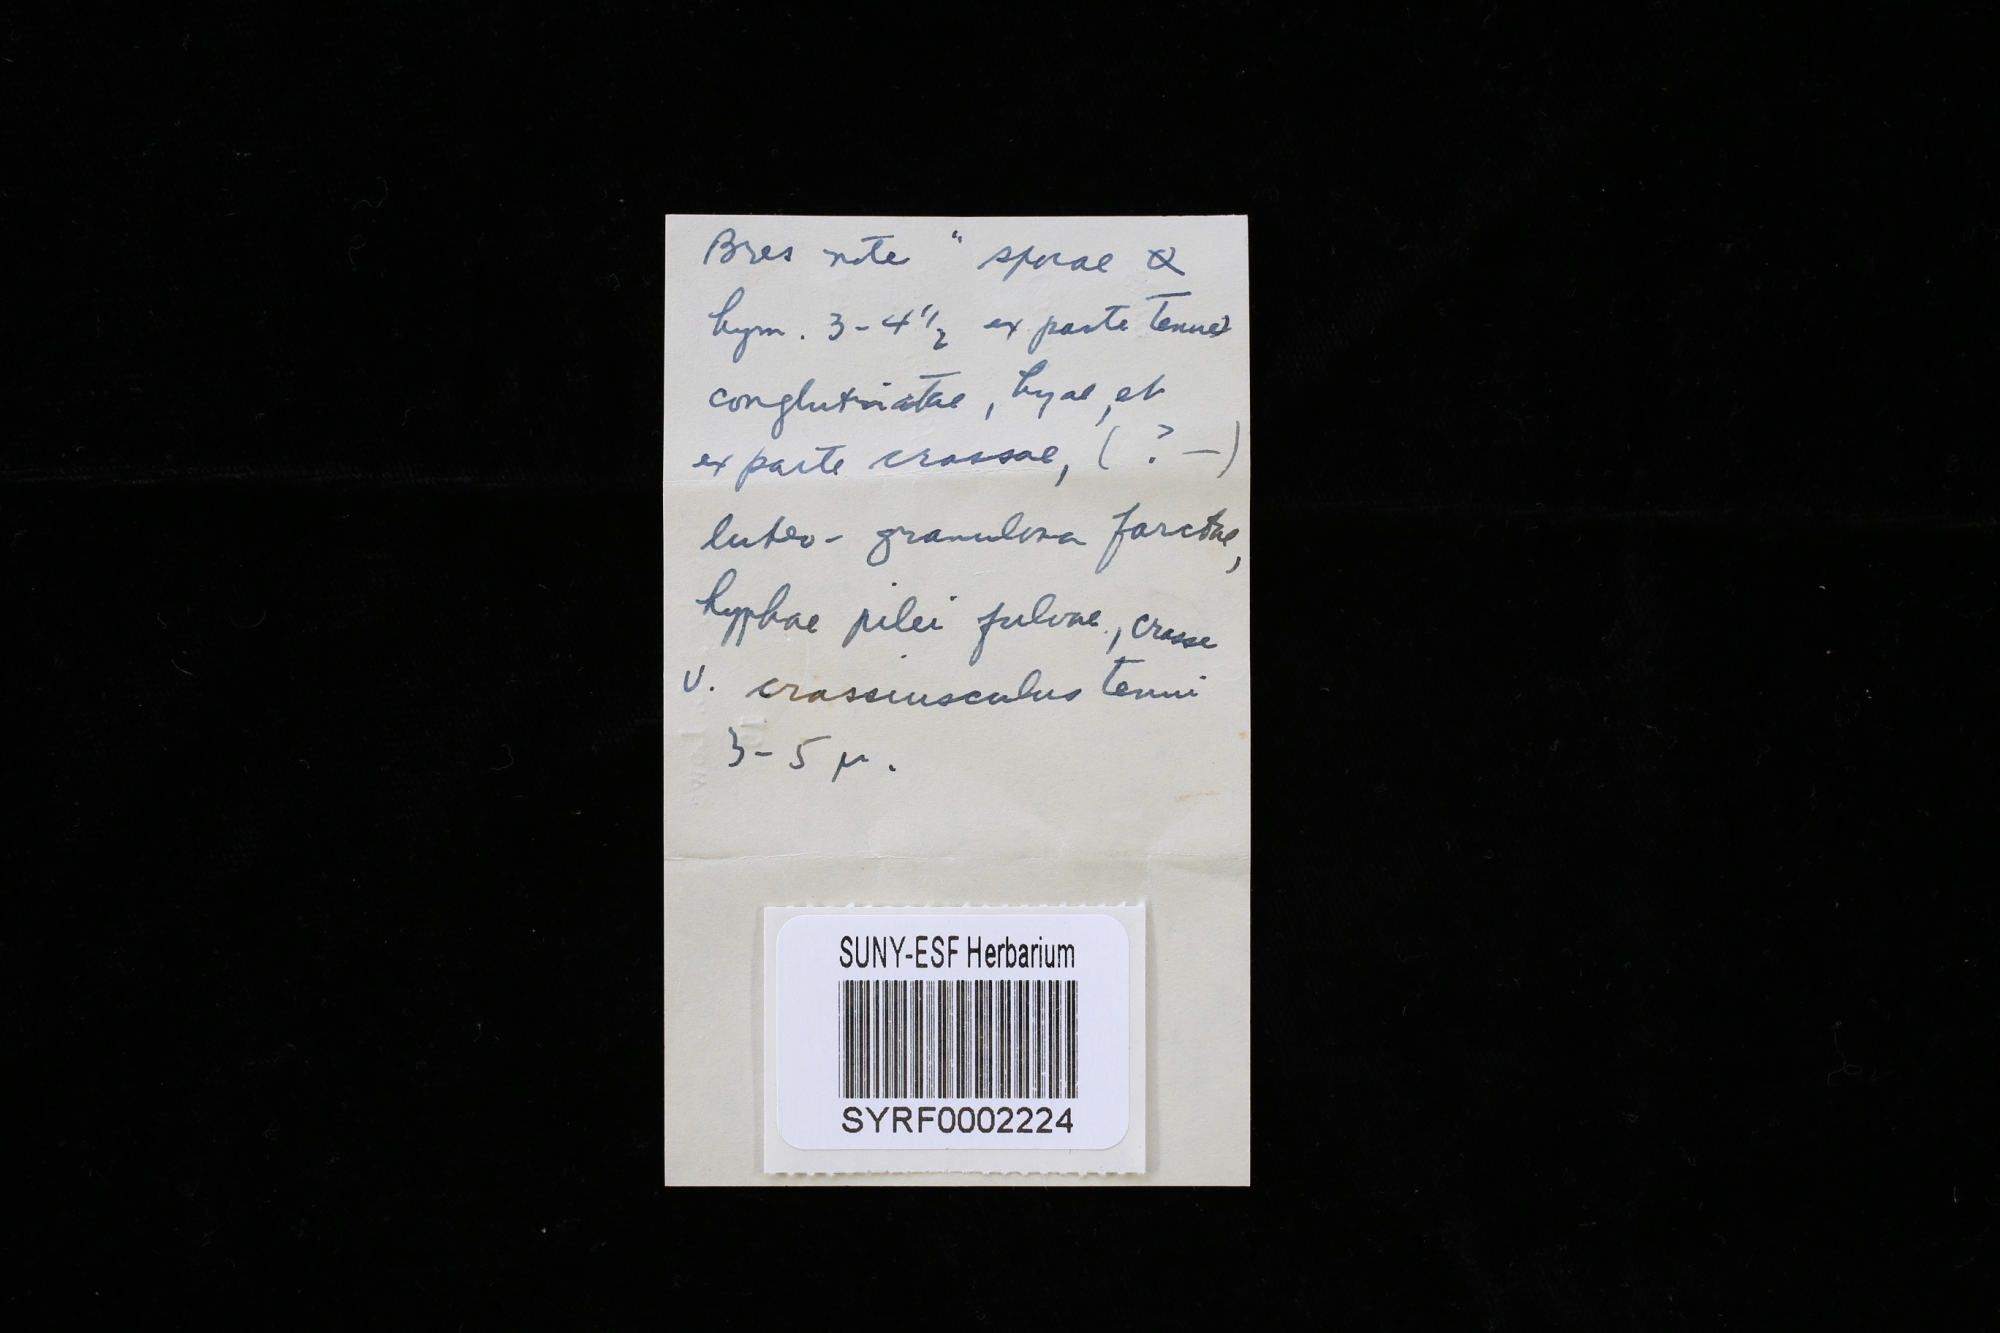 Bres note " sporae &
hym. 3-4 1/2 ex parte tenues
conglutinatae, hyal, et
ex parte crassae, ( ? — )
luteo- granulosa farctae,
hyphae pilei fulvae, crasse
v. crassiusculus tenui
3-5 µ.
SUNY-ESF Herbarium
SYRF0002224